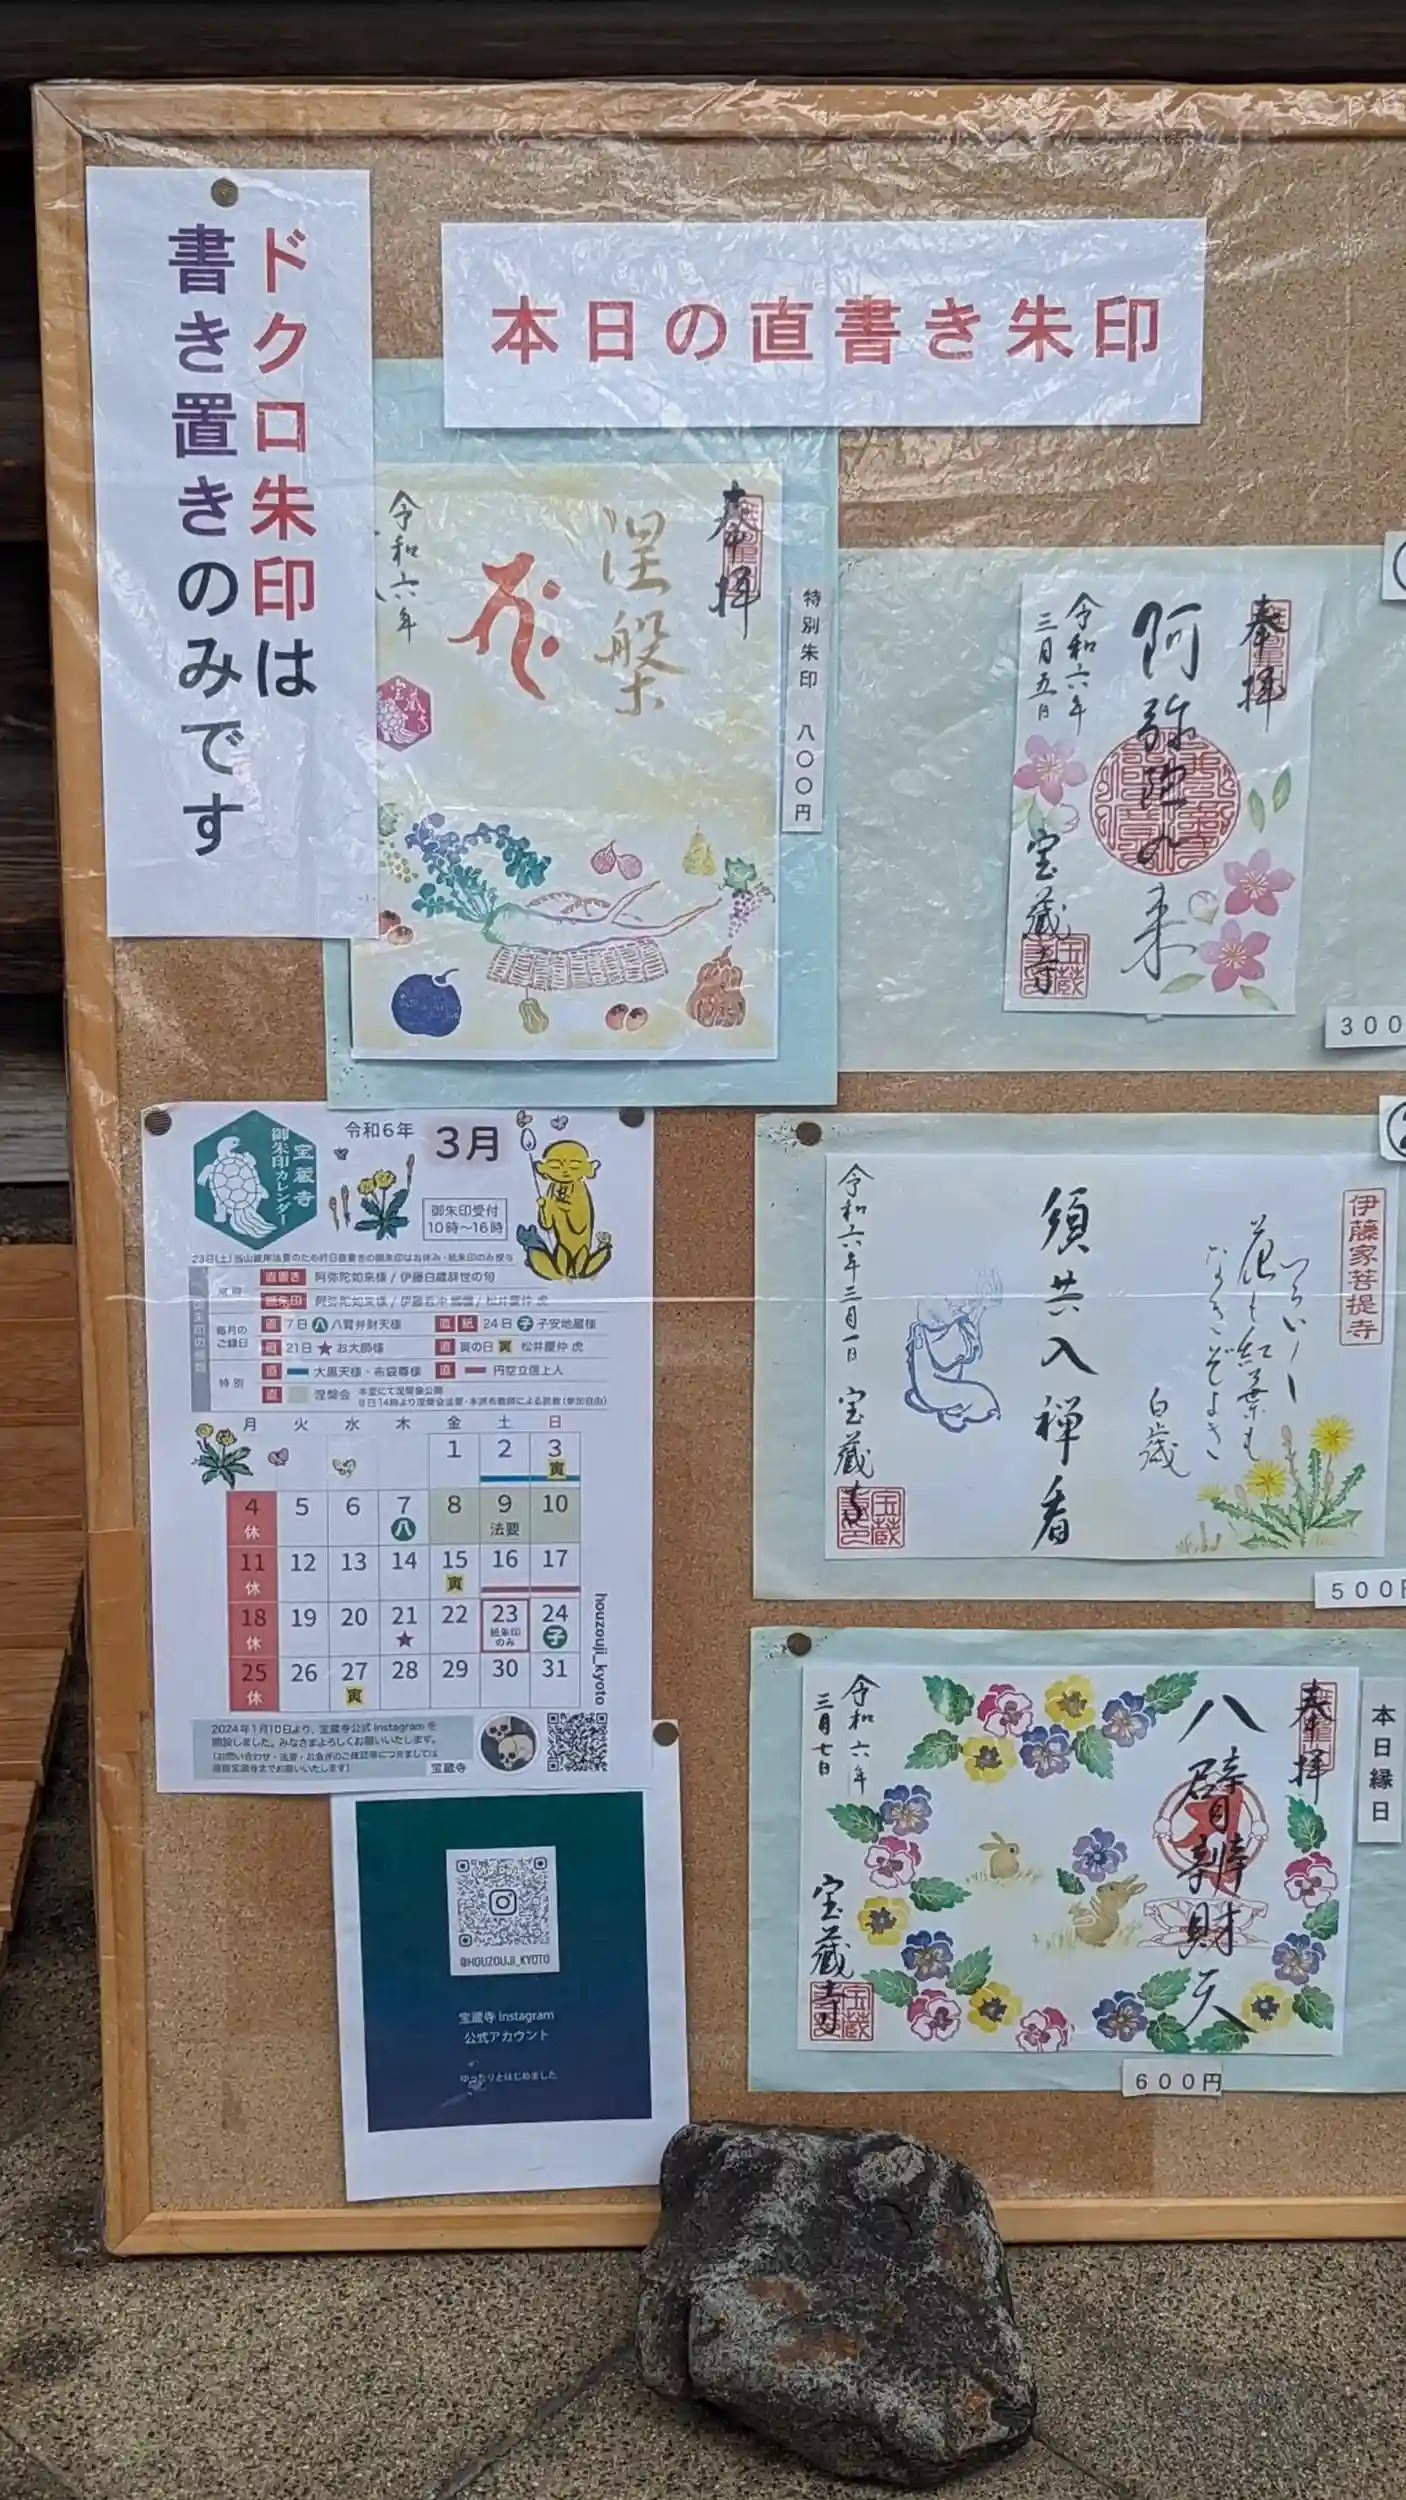 ドクロ朱印は
書き置きのみです
本日の直書き朱印
奉拝
涅槃
令和六年
宝蔵寺
特別朱印 八〇〇円
奉拝
阿弥陀如来
令和六年
三月五日
宝蔵寺
宝蔵
300
宝蔵寺
御朱印カレンダー
令和6年 3月
御朱印受付
10時～16時
直書き 阿弥陀如来様 / 伊藤白歳辞世の句
紙朱印
毎月の
ご縁日
直 7日 八 八臂弁財天様
直 紙 24日 子 子安地蔵様
21日 ★ お大師様
直 寅の日 寅 松井慶仲 虎
特別
直 大黒天様・布袋尊様
直 円空立信上人
直 涅槃会 本堂にて涅槃像公開
月 火 水 木 金 土 日
1 2 3
寅
4 5 6 7 8 9 10
休 八 法要
11 12 13 14 15 16 17
休 寅
18 19 20 21 22 23 24
休 ★ 紙朱印のみ 子
25 26 27 28 29 30 31
休 寅
houzouji_kyoto
2024年1月10日より、宝蔵寺公式Instagramを
開設しました。みなさまよろしくお願いいたします。
宝蔵寺
@HOUZOUJI_KYOTO
宝蔵寺 Instagram
公式アカウント
ゆったりとはじめました
伊藤家菩提寺
白歳
須共入禅看
令和六年三月一日 宝蔵寺
宝蔵
500円
奉拝
八臂辨財天
令和六年
三月七日
宝蔵寺
宝蔵
本日縁日
600円